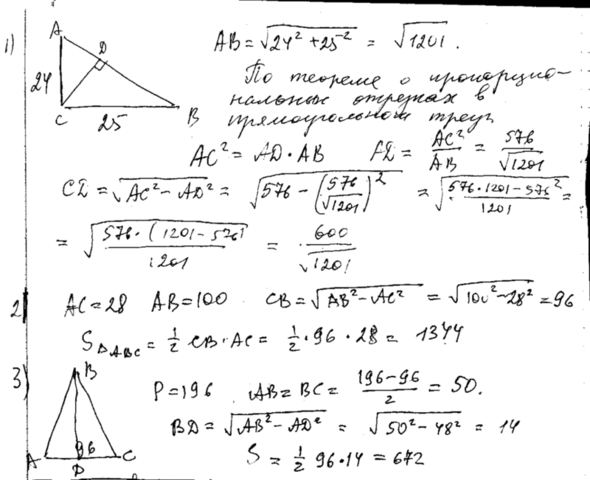 1)
A
D
24
C
25
B
AB = √(24² + 25²) = √1201.
По теореме о пропорцио-
нальных отрезках в
прямоугольном треуг.
AC² = AD · AB AD = AC²/AB = 576/√1201
CD = √(AC² − AD²) = √(576 − (576/√1201)²) = √((576 · 1201 − 576²)/1201) =
= √((576 · (1201 − 576))/1201) = 600/√1201
2) AC = 28 AB = 100 CB = √(AB² − AC²) = √(100² − 28²) = 96
S△ABC = 1/2 CB · AC = 1/2 · 96 · 28 = 1344
3)
B
A
96
D
C
P = 196 AB = BC = (196 − 96)/2 = 50.
BD = √(AB² − AD²) = √(50² − 48²) = 14
S = 1/2 96 · 14 = 672